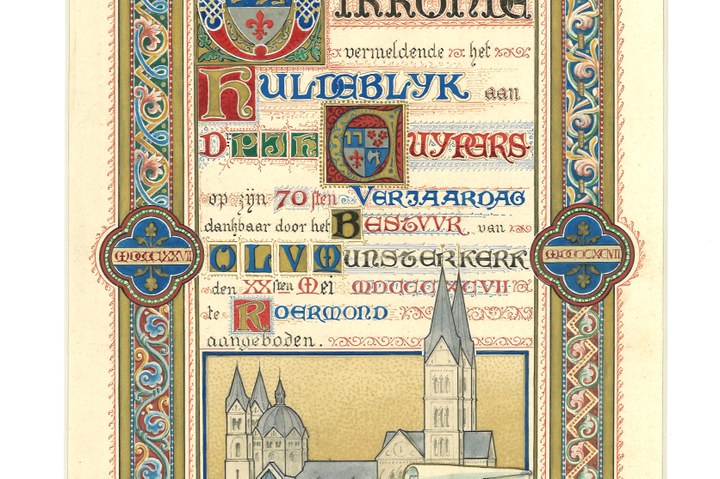 OIRKONDE
vermeldende het
HULDEBLYK aan
Dr PJH CUYPERS
op zijn 70sten VERJAARDAG
dankbaar door het BESTUUR van
OLV MUNSTERKERK
MDCCCXXVII
MDCCCXCVII
den XXsten Mei MDCCCXCVII
te ROERMOND
aangeboden.